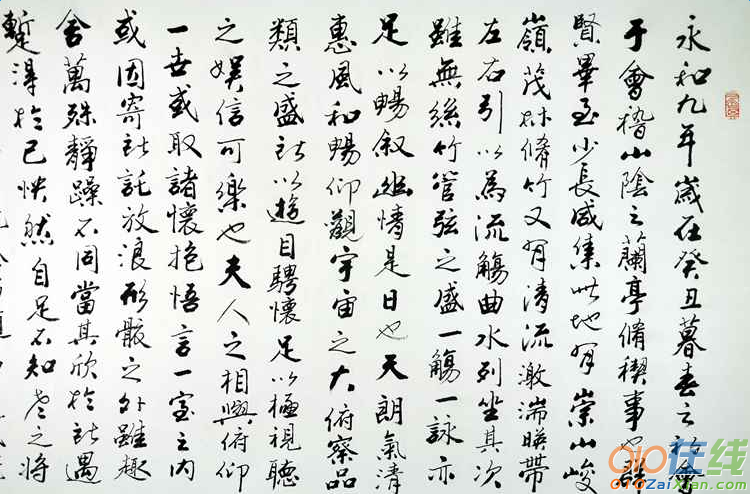 永和九年歲在癸丑暮春之初會
于會稽山陰之蘭亭脩禊事也群
賢畢至少長咸集此地有崇山峻
嶺茂林脩竹又有清流激湍暎帶
左右引以為流觴曲水列坐其次
雖無絲竹管弦之盛一觴一詠亦
足以暢叙幽情是日也天朗氣清
惠風和暢仰觀宇宙之大俯察品
類之盛所以遊目騁懷足以極視聽
之娛信可樂也夫人之相與俯仰
一世或取諸懷抱悟言一室之內
或因寄所託放浪形骸之外雖趣
舍萬殊靜躁不同當其欣於所遇
蹔得於己怏然自足不知老之將
010在线
010ZaiXian.com